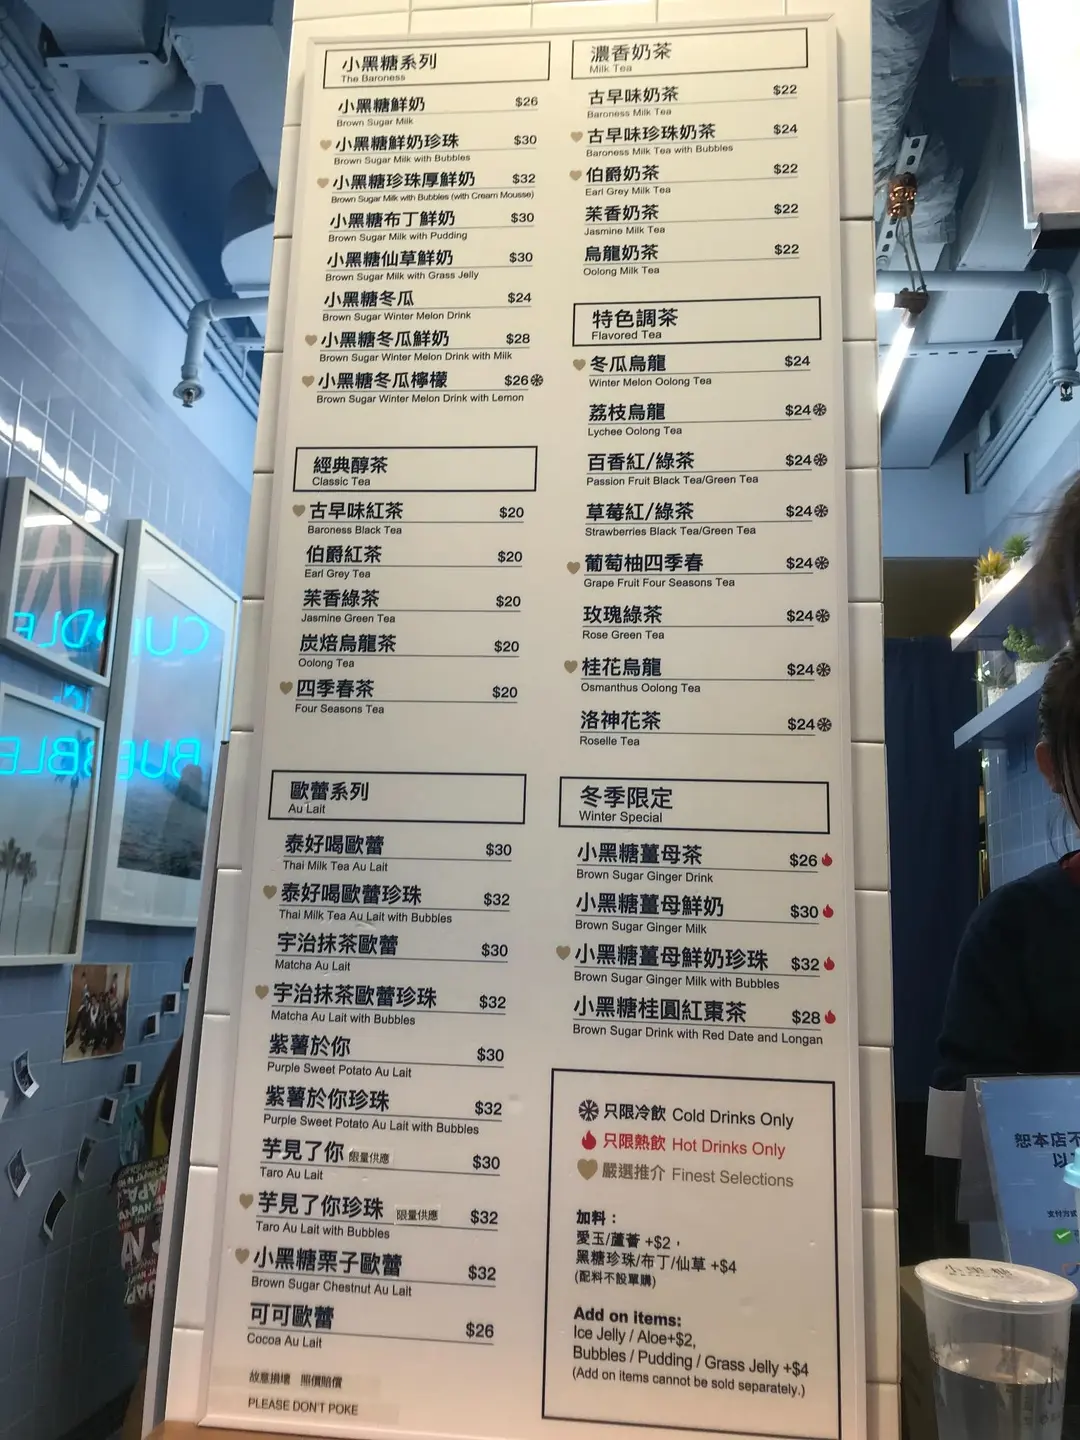 小黑糖系列
The Baroness
小黑糖鮮奶 $26
Brown Sugar Milk
小黑糖鮮奶珍珠 $30
Brown Sugar Milk with Bubbles
小黑糖珍珠厚鮮奶 $32
Brown Sugar Milk with Bubbles (with Cream Mousse)
小黑糖布丁鮮奶 $30
Brown Sugar Milk with Pudding
小黑糖仙草鮮奶 $30
Brown Sugar Milk with Grass Jelly
小黑糖冬瓜 $24
Brown Sugar Winter Melon Drink
小黑糖冬瓜鮮奶 $28
Brown Sugar Winter Melon Drink with Milk
小黑糖冬瓜檸檬 $26
Brown Sugar Winter Melon Drink with Lemon
經典醇茶
Classic Tea
古早味紅茶 $20
Baroness Black Tea
伯爵紅茶 $20
Earl Grey Tea
茉香綠茶 $20
Jasmine Green Tea
炭焙烏龍茶 $20
Oolong Tea
四季春茶 $20
Four Seasons Tea
歐蕾系列
Au Lait
泰好喝歐蕾 $30
Thai Milk Tea Au Lait
泰好喝歐蕾珍珠 $32
Thai Milk Tea Au Lait with Bubbles
宇治抹茶歐蕾 $30
Matcha Au Lait
宇治抹茶歐蕾珍珠 $32
Matcha Au Lait with Bubbles
紫薯於你 $30
Purple Sweet Potato Au Lait
紫薯於你珍珠 $32
Purple Sweet Potato Au Lait with Bubbles
芋見了你 限量供應 $30
Taro Au Lait
芋見了你珍珠 限量供應 $32
Taro Au Lait with Bubbles
小黑糖栗子歐蕾 $32
Brown Sugar Chestnut Au Lait
可可歐蕾 $26
Cocoa Au Lait
故意損壞 照價賠償
PLEASE DON'T POKE
濃香奶茶
Milk Tea
古早味奶茶 $22
Baroness Milk Tea
古早味珍珠奶茶 $24
Baroness Milk Tea with Bubbles
伯爵奶茶 $22
Earl Grey Milk Tea
茉香奶茶 $22
Jasmine Milk Tea
烏龍奶茶 $22
Oolong Milk Tea
特色調茶
Flavored Tea
冬瓜烏龍 $24
Winter Melon Oolong Tea
荔枝烏龍 $24
Lychee Oolong Tea
百香紅/綠茶 $24
Passion Fruit Black Tea/Green Tea
草莓紅/綠茶 $24
Strawberries Black Tea/Green Tea
葡萄柚四季春 $24
Grape Fruit Four Seasons Tea
玫瑰綠茶 $24
Rose Green Tea
桂花烏龍 $24
Osmanthus Oolong Tea
洛神花茶 $24
Roselle Tea
冬季限定
Winter Special
小黑糖薑母茶 $26
Brown Sugar Ginger Drink
小黑糖薑母鮮奶 $30
Brown Sugar Ginger Milk
小黑糖薑母鮮奶珍珠 $32
Brown Sugar Ginger Milk with Bubbles
小黑糖桂圓紅棗茶 $28
Brown Sugar Drink with Red Date and Longan
只限冷飲 Cold Drinks Only
只限熱飲 Hot Drinks Only
嚴選推介 Finest Selections
加料：
愛玉/蘆薈 +$2，
黑糖珍珠/布丁/仙草 +$4
(配料不設單購)
Add on items:
Ice Jelly / Aloe+$2,
Bubbles / Pudding / Grass Jelly +$4
(Add on items cannot be sold separately.)
CUDDLE
BUBBLE
恕本店不
以
支付方式
小黑糖